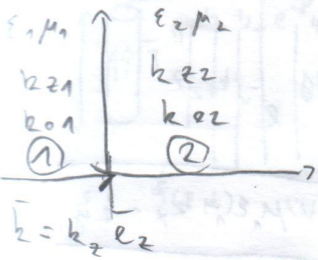 ε₁ μ₁
k z1
k o1
①
ε₂ μ₂
k z2
k o2
②
k̄ = k_z ē_z